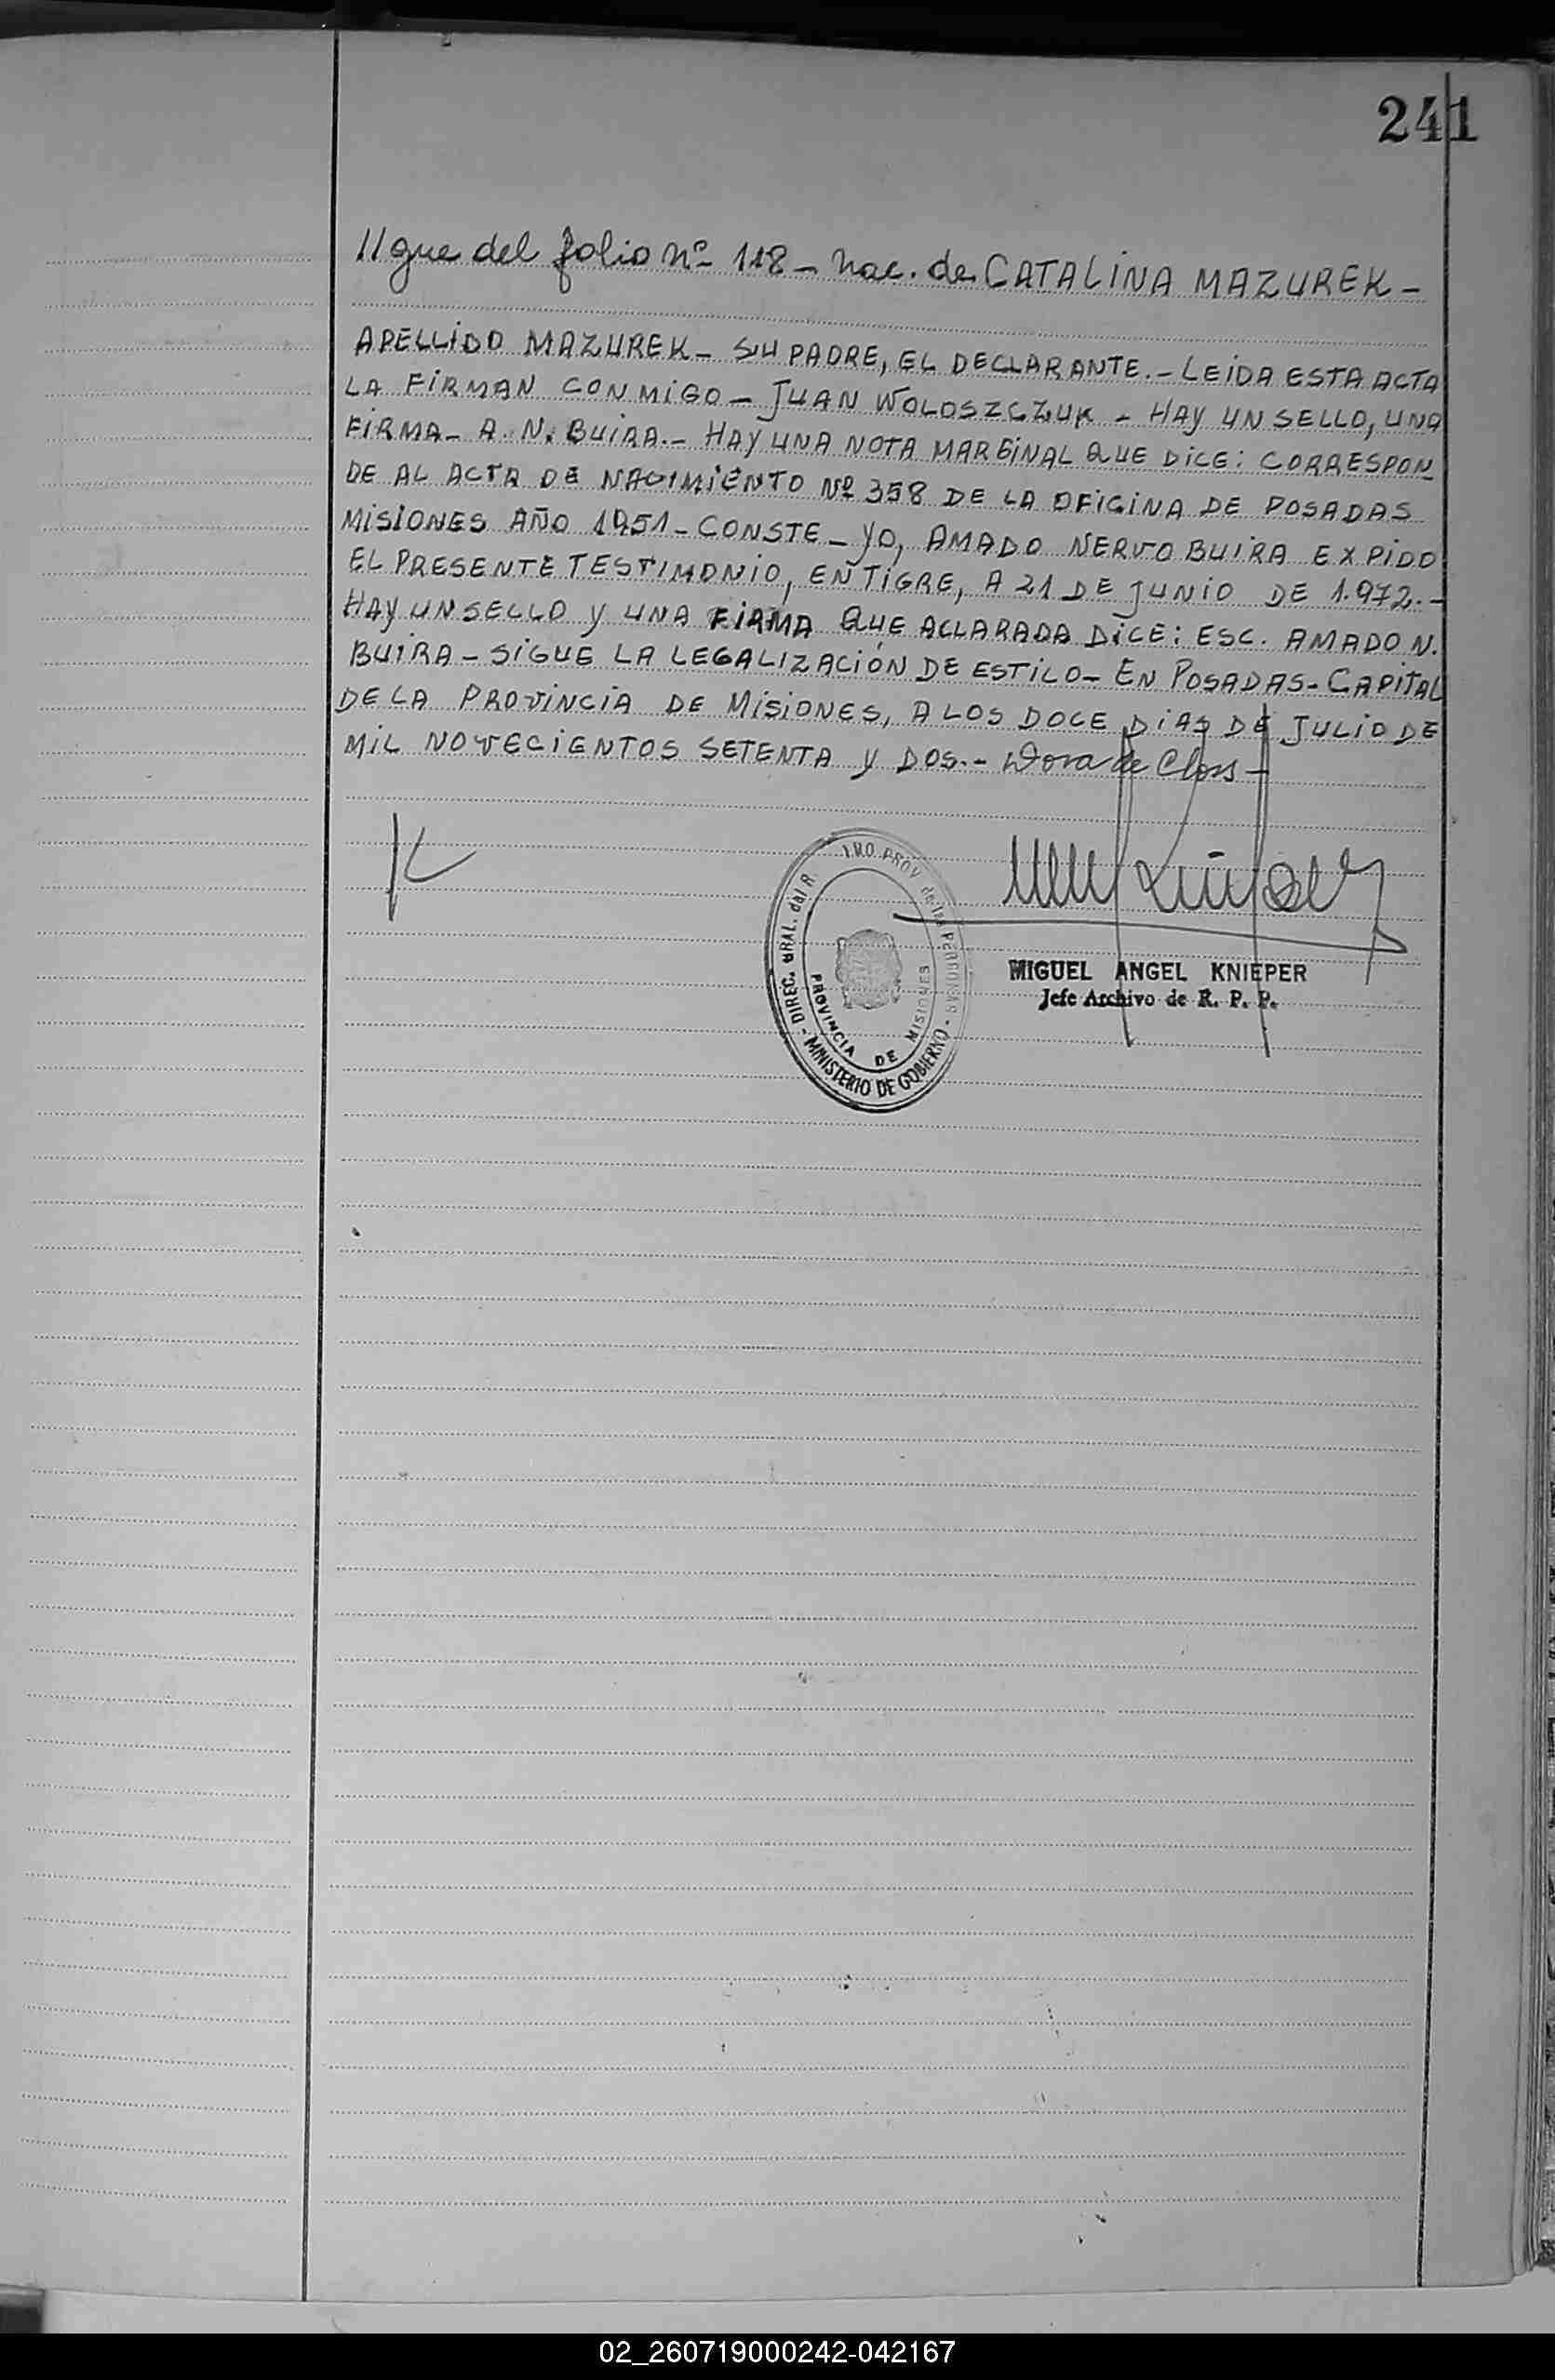 241
//gue del folio nº 118 - Nac. de CATALINA MAZUREK -
APELLIDO MAZUREK - SU PADRE, EL DECLARANTE.- LEIDA ESTA ACTA
LA FIRMAN CONMIGO - JUAN WOLOSZCZUK - HAY UN SELLO, UNA
FIRMA - A. N. BUIRA.- HAY UNA NOTA MARGINAL QUE DICE: CORRESPON
DE AL ACTA DE NACIMIENTO Nº 358 DE LA OFICINA DE POSADAS
MISIONES AÑO 1951 - CONSTE - YO, AMADO NERVO BUIRA EXPIDO
EL PRESENTE TESTIMONIO, EN TIGRE, A 21 DE JUNIO DE 1.972.-
HAY UN SELLO Y UNA FIRMA QUE ACLARADA DICE: ESC. AMADO N.
BUIRA - SIGUE LA LEGALIZACIÓN DE ESTILO - EN POSADAS - CAPITAL
DE LA PROVINCIA DE MISIONES, A LOS DOCE DIAS DE JULIO DE
MIL NOVECIENTOS SETENTA Y DOS.- Dora de Closs -
DIREC. GRAL. del R. TRO PROV de las Personas - MINISTERIO DE GOBIERNO -
PROVINCIA DE MISIONES
MIGUEL ANGEL KNIEPER
Jefe Archivo de R. P. P.
02_260719000242-042167